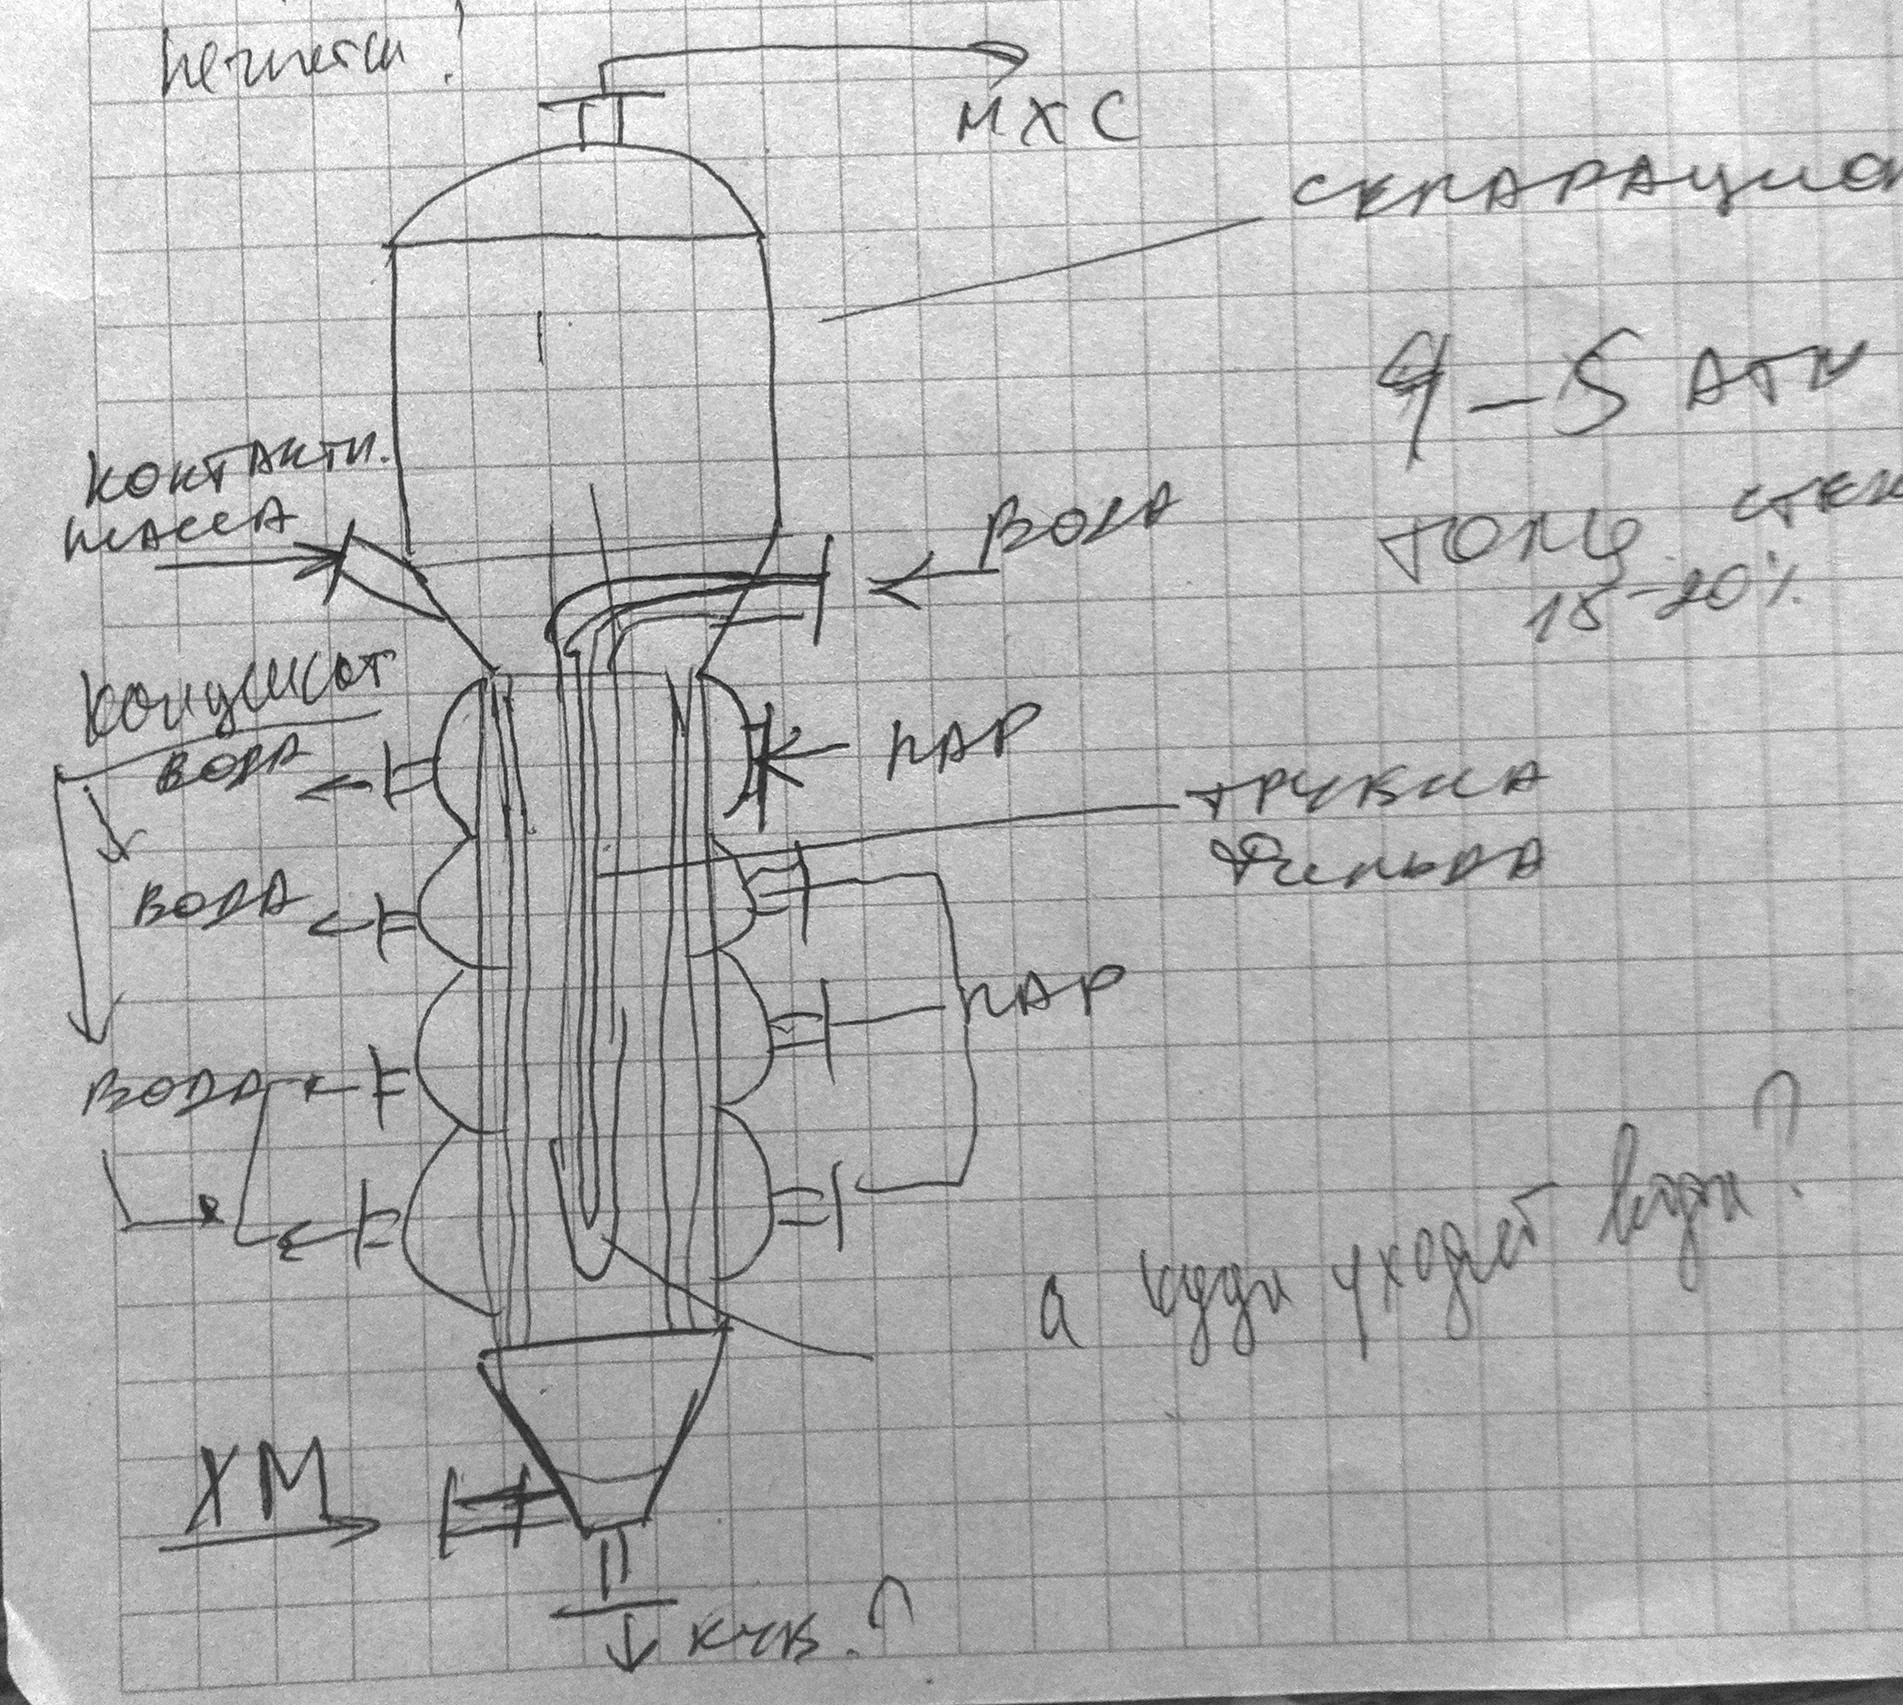 МХС
СЕПАРАЦИОН
4-5 АТМ
КОНТАКТН.
МАССА
ВОДА
ТОЛЩ. СТЕН
18-20%
Конденсат
ВОДА
ПАР
ТРУБКА
ФИЛЬДА
ВОДА
ПАР
ВОДА
а куда уходет вода?
ХМ
КУБ.?